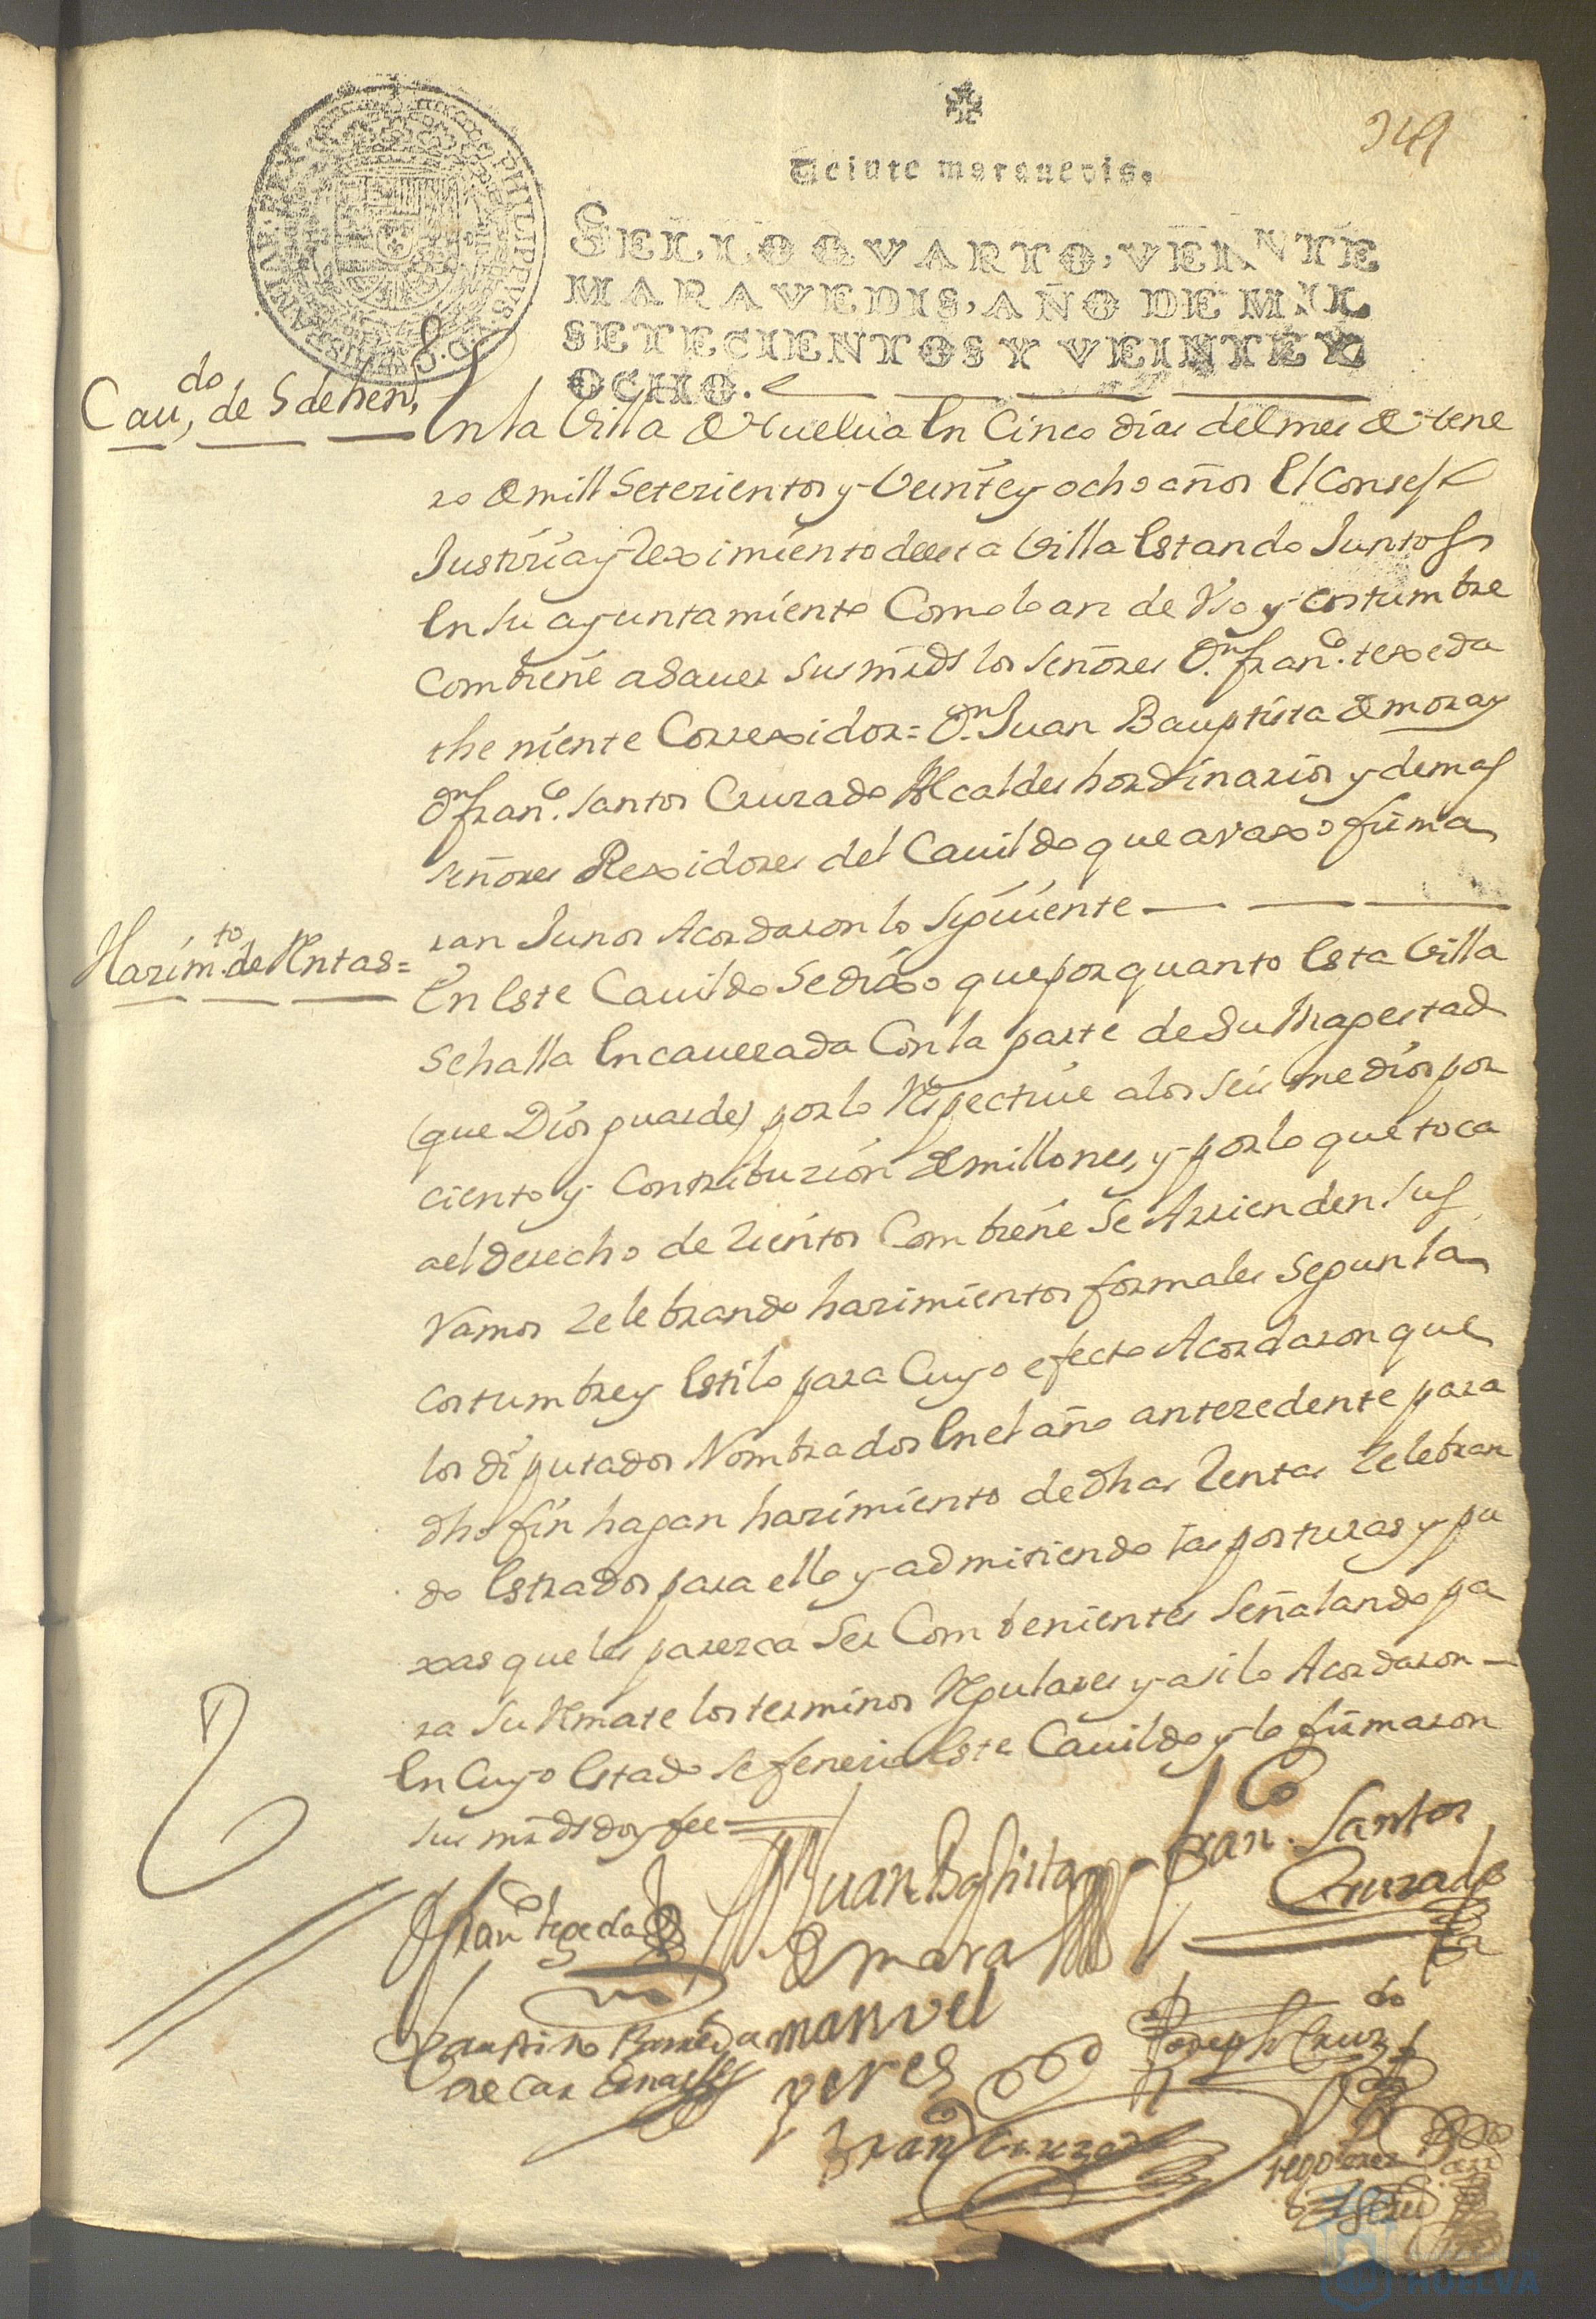 349
Veinte maravedis.
SELLO QVARTO, VEINTE
MARAVEDIS, AÑO DE MIL
SETECIENTOS Y VEINTE Y
OCHO.
PHILIPPVS. V. D. G. HISPANIARVM. REX
Cau.do de 5 de hen.o
En la Villa de Huelua En Cinco dias del mes de hene
ro de mill Seterientos y Veinte y ocho años El Consejo
Justiria y Reximiento desta Villa Estando Juntos
En su ayuntamiento Como lo an de Vso y costumbre
Combiene a Sauer Sus mrds los señores Dn. fran.co texeda
theniente Correxidor = Dn. Juan Bauptista de mora y
Dn fran.co santos Cruzado Alcaldes hordinarios y demas
señores Rexidores del Cauildo que avaxo firma
ran Junos Acordaron lo Siguiente
Harim.to de Rentas =
En Este Cauildo Se dixo que por quanto Esta Villa
Se halla Encauezada Con la parte de Su Magestad
(que Dios guarde) por lo Respectiue a los seis medios por
ciento y Contribuzion de millones, y por lo que toca
al derecho de zientos Combiene Se Arrienden Sus
Ramos Zelebrando harimientos formales Segun la
costumbre y Estilo para Cuyo efecto Acordaron que
los diputados Nombrados En el año anteredente para
dho fin hagan harimiento de dhas Rentas Zelebran
do Estrados para ello y admitiendo las posturas y pu
xas que les parezca Ser Combenientes Señalando pa
ra Su Remate los terminos Regulares y asi lo Acordaron
En Cuyo Estado Se feneció Este Cauildo y lo firmaron
Sus mrds doy fee
Dn fran.co texeda
Juan Baptista
de mora
Fran.co Santos
Cruzado
Faustino
manuel
perez
Joseph Cruz.do
Fran.co Cruzado
HUELVA